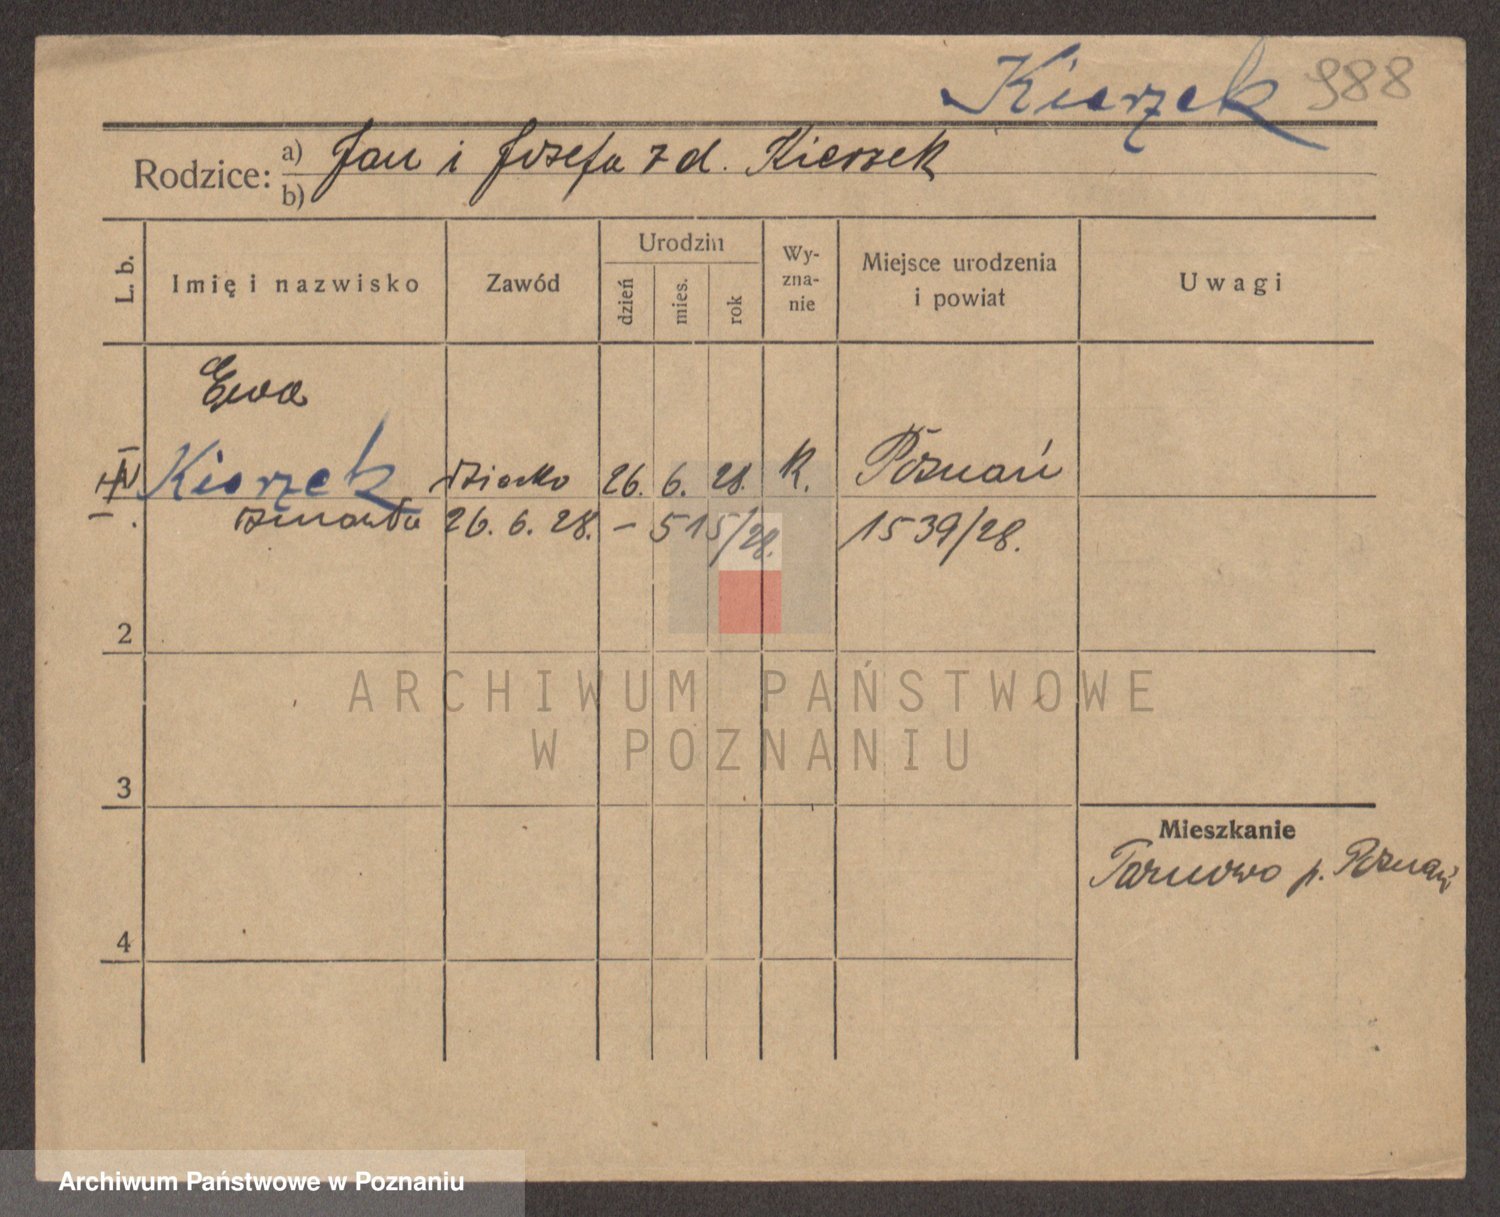 Kierzek 988
Rodzice: a) Jan i Józefa z d. Kierzek
b)
L. b. Imię i nazwisko Zawód Urodzin Wy-zna-nie Miejsce urodzenia i powiat Uwagi
dzień mies. rok
Ewa
Kierzek dziecko 26. 6. 28. R. Poznań
zmarła 26. 6. 28. – 515/28. 1539/28.
2
ARCHIWUM PAŃSTWOWE
W POZNANIU
3
Mieszkanie
Tarnowo p. Poznań
4
Archiwum Państwowe w Poznaniu